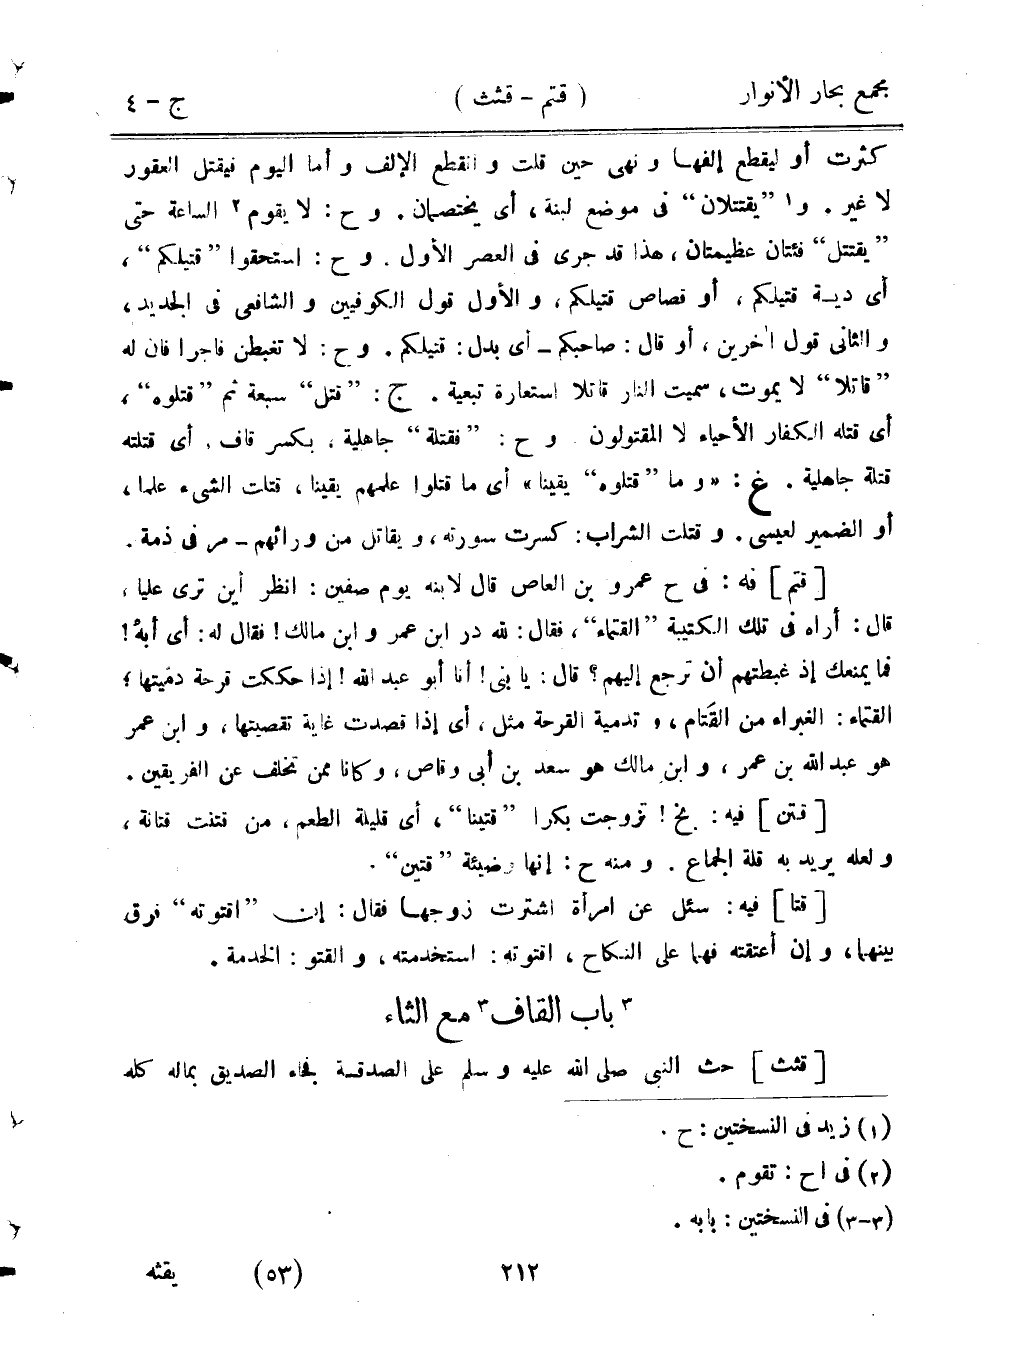 مجمع بحار الأنوار ( قتم - قثث ) ج - ٤
كثرت أو ليقطع إلفها و نهى حين قلت و انقطع الإلف و أما اليوم فيقتل العقور
لا غير . و١ ”يقتتلان“ فى موضع لبنة، أى يختصمان. و ح: لا يقوم٢ الساعة حتى
”يقتتل“ فئتان عظيمتان، هذا قد جرى فى العصر الأول . و ح: استحقوا ”قتيلكم“،
أى دية قتيلكم، أو قصاص قتيلكم، و الأول قول الكوفيين و الشافعى فى الجديد،
و الثانى قول اخرين، أو قال: صاحبكم ـ أى بدل: قتيلكم . و ح: لا تغبطن فاجرا فان له
”قاتلا“ لا يموت، سميت النار قاتلا استعارة تبعية . ج: ”قتل“ سبعة ثم ”قتلوه“،
أى قتله الكفار الأحياء لا المقتولون . و ح: ”فقتلة“ جاهلية، بكسر قاف، أى قتلته
قتلة جاهلية . غ: «و ما ”قتلوه“ يقينا» أى ما قتلوا علمهم يقينا، قتلت الشىء علما،
أو الضمير لعيسى. و قتلت الشراب: كسرت سورته، و يقاتل من ورائهم ـ مر فى ذمة .
[قتم] فه: فى ح عمرو بن العاص قال لابنه يوم صفين: انظر أين ترى عليا،
قال: أراه فى تلك الكتيبة ”القتماء“، فقال: لله در ابن عمر و ابن مالك! فقال له: أى أبهْ!
فما يمنعك إذ غبطتهم أن ترجع إليهم؟ قال: يا بنى! أنا أبو عبد الله! إذا حككت قرحة دمّيتها؛
القتماء: الغبراء من القَتام، و تدمية القرحة مثل، أى إذا قصدت غاية تقصيتها، و ابن عمر
هو عبد الله بن عمر، و ابن مالك هو سعد بن أبى وقاص، و كانا ممن تخلف عن الفريقين .
[قتن] فيه: بخ! تزوجت بكرا ”قتينا“، أى قليلة الطعم، من قتنت قتانة،
و لعله يريد به قلة الجماع . و منه ح: إنها وضيئة ”قتين“ .
[قتا] فيه: سئل عن امرأة اشترت زوجها فقال: إن ”اقتوته“ فرق
بينهما، و إن أعتقته فهما على النكاح، اقتوته: استخدمته، و القتو: الخدمة .
٣ باب القاف٣ مع الثاء
[قثث] حث النبى صلى الله عليه و سلم على الصدقة فجاء الصديق بماله كله
(١) زيد فى النسختين: ح .
(٢) فى اح: تقوم .
(٣-٣) فى النسختين: بابه .
٢١٢ (٥٣) يقثه